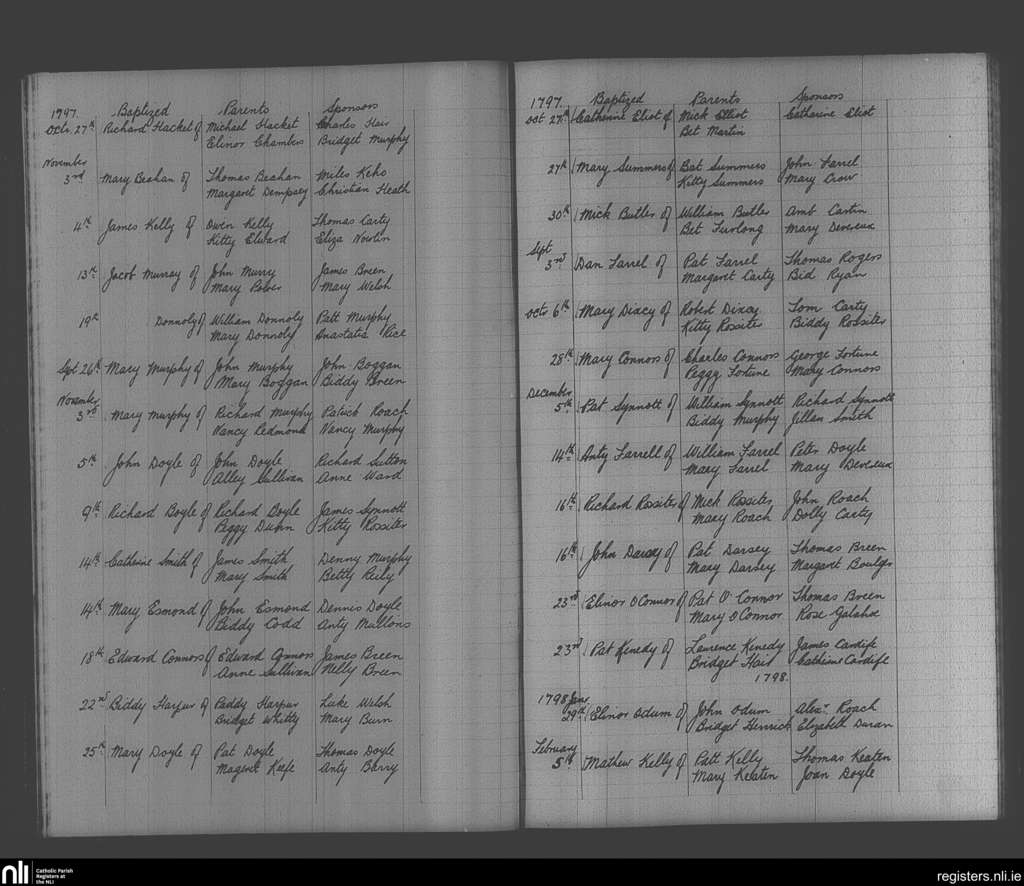 1797. Baptized Parents Sponsors
Octr. 27th Richard Hacket of Michael Hacket Charles Hair
Elinor Chambers Bridget Murphy
November
3rd Mary Beahan of Thomas Beahan Miles Keho
Margaret Dempsey Christian Heath
4th James Kelly of Owen Kelly Thomas Carty
Kitty Elward Eliza Nowlin
13th Jacob Murray of John Murry James Breen
Mary Power Mary Welsh
19th Donnoly of William Donnoly Patt Murphy
Mary Donnoly Anastatia Rice
Sept 26th Mary Murphy of John Murphy John Boggan
Mary Boggan Biddy Breen
November
3rd Mary Murphy of Richard Murphy Patrick Roach
Nancy Redmond Nancy Murphy
5th John Doyle of John Doyle Richard Sutton
Alley Sullivan Anne Ward
9th Richard Boyle of Richard Boyle James Synnott
Peggy Dunn Kitty Rossiter
14th Catherine Smith of James Smith Denny Murphy
Mary Smith Betty Reily
14th Mary Esmond of John Esmond Dennis Doyle
Biddy Codd Anty Mullons
18th Edward Connors of Edward Connors James Breen
Anne Sullivan Nelly Breen
22nd Biddy Harpur of Paddy Harpur Luke Welsh
Bridget Whitty Mary Burn
25th Mary Doyle of Pat Doyle Thomas Doyle
Magaret Keefe Anty Barry
1797. Baptized Parents Sponsors
Oct 27th Catherine Eliot of Nick Elliot Catharine Eliot
Bet Martin
27th Mary Summers of Bat Summers John Farrel
Kitty Summers Mary Crow
30th Mick Butler of William Butler Amb Cartin
Bet Furlong Mary Devereux
Sept
3rd Dan Farrel of Pat Farrel Thomas Rogers
Margaret Carty Bid Ryan
Octr 6th Mary Dixcy of Robert Dixcy Tom Carty
Kitty Rossiter Biddy Rossiter
28th Mary Connors of Charles Connors George Fortune
Peggy Fortune Mary Connors
December
5th Pat Synnott of William Synnott Richard Synnott
Biddy Murphy Jillan Smith
14th Anty Farrell of William Farrel Peter Doyle
Mary Farrel Mary Devereux
16th Richard Rossiter of Mick Rossiter John Roach
Mary Roach Dolly Carty
16th John Darcey of Pat Darsey Thomas Breen
Mary Darsey Margaret Boulger
23rd Elinor O'Connor of Pat O'Connor Thomas Breen
Mary O'Connor Rose Galahoe
23rd Pat Kenedy of Laurence Kenedy James Cardife
Bridget Hair Catherine Cardife
1798.
1798 Jany
29th Elinor Odum of John Odum Alexr. Roach
Bridget Henrick Elizabeth Duran
February
5th Mathew Kelly of Patt Kelly Thomas Keaten
Mary Keaten Joan Doyle
nli Catholic Parish
Registers at
the NLI
registers.nli.ie